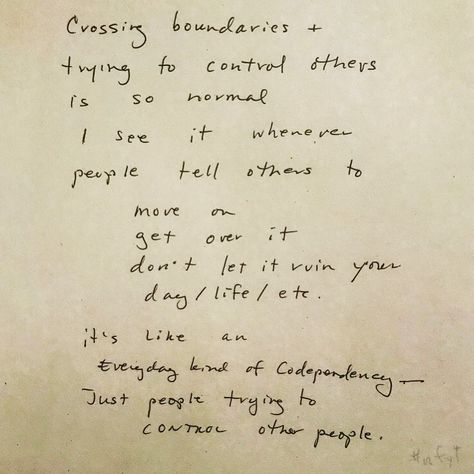 Crossing boundaries +
trying to control others
is so normal
I see it whenever
people tell others to
move on
get over it
don't let it ruin your
day / life / etc.
it's like an
Everyday kind of Codependency —
Just people trying to
CONTROL other people.